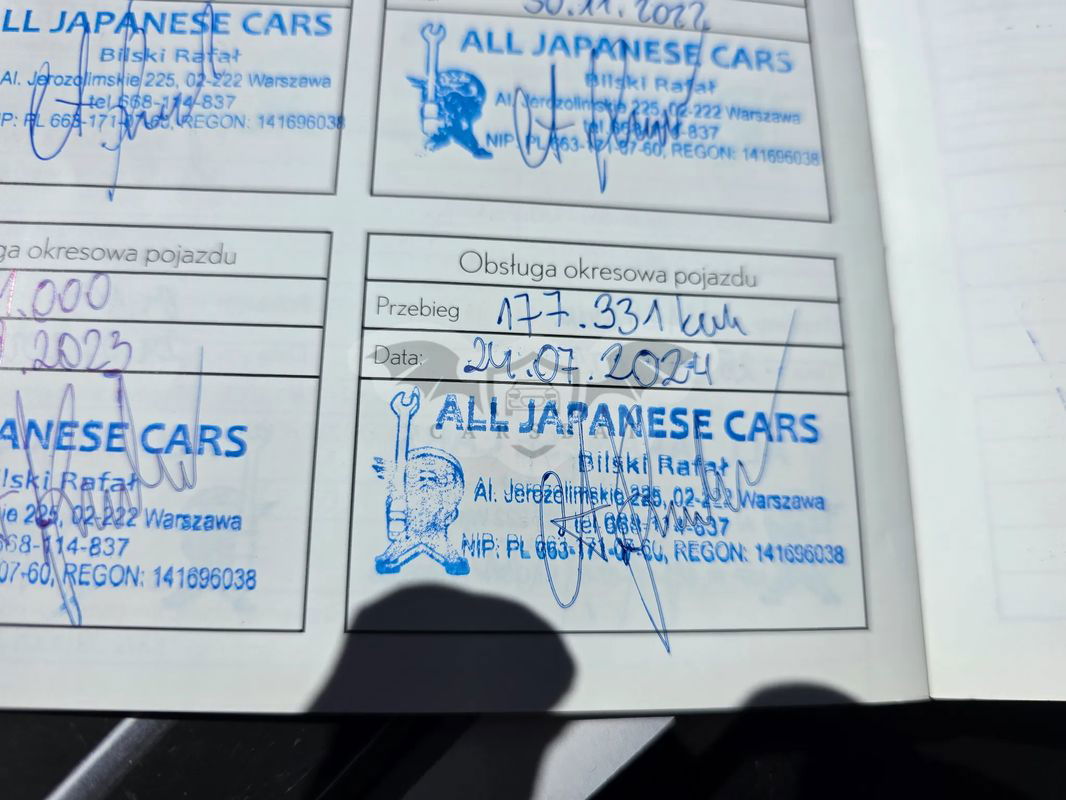 LL JAPANESE CARS
Bilski Rafał
Al. Jerozolimskie 225, 02-222 Warszawa
tel 668-114-837
IP: PL 663-171-07-60, REGON: 141696038
30.11.2022
ALL JAPANESE CARS
Bilski Rafał
Al. Jerozolimskie 225, 02-222 Warszawa
tel 668-114-837
NIP: PL 663-171-07-60, REGON: 141696038
ga okresowa pojazdu
1.000
.2023
ANESE CARS
lski Rafał
ie 225, 02-222 Warszawa
668-114-837
07-60, REGON: 141696038
Obsługa okresowa pojazdu
Przebieg 177.331 km
Data: 24.07.2024
ALL JAPANESE CARS
Bilski Rafał
Al. Jerozolimskie 225, 02-222 Warszawa
tel 668-114-837
NIP: PL 663-171-07-60, REGON: 141696038